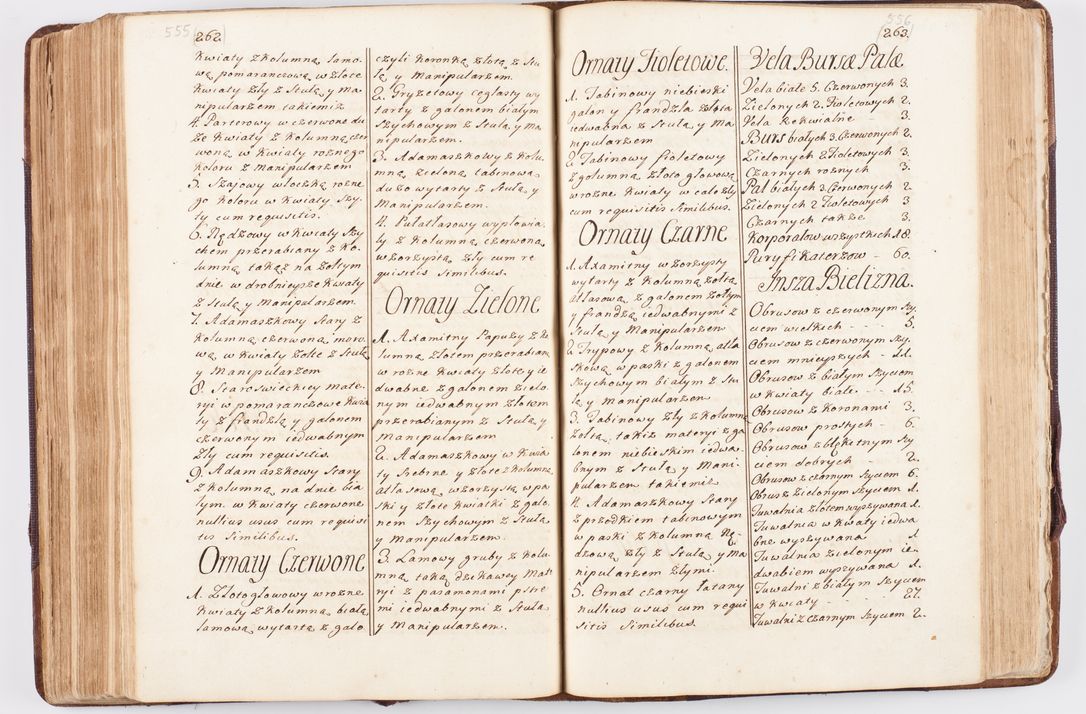 555 262.
kwiaty z kolumną lamo-
wą pomaranczową w złote
kwiaty zły z stułą y ma-
nipularzem takiemiz
4. Parterowy w czerwone du
ze kwiaty z kolumną czer
woną w kwiaty roznego
koloru z Manipularzem
5. Szajowy włoczką rozne
go koloru w kwiaty szy-
ty cum requisitis.
6. Nędzowy w kwiaty szy
chem przerabiany z ko-
lumną takąż na żołtym
dnie w drobnieysze kwiaty
z stułą y Manipularzem.
7. Adamaszkowy stary z
kolumną czerwoną moro-
wą, w kwiaty żołte z stułą
y Manipularzem
8. Staroswieckiey mate-
ryi w pomaranczowe kwia
ty z frandzlą y galonem
czerwonym iedwabnym
zły cum requisitis.
9. Adamaszkowy stary
z kolumną na dnie bia
łym. w kwiaty czerwone
nullius usus cum requisi
tis similibus.
Ornaty Czerwone
1. Złotogłowowy w rozne
kwiaty z kolumną białą
lamową wytartą z galo
czyli koronką złotą z stu
łą y Manipularzem.
2. Gryzetowy ceglasty wy
tarty z galonem białym
szychowym z stułą y ma
nipularzem.
3. Adamaszkowy z kolu-
mną zieloną tabinową
duzo wytarty z stułą y
Manipularzem.
4. Pułatłasowy wypłowia
ły z kolumną czerwoną
wzorzystą zły cum re
quisitis similibus.
Ornaty Zielone
1. Axamitny Papuzy z ko
lumną złotem przerabianą
w rozne kwiaty złote y ie
dwabne z galonem zielo
nym iedwabnym złotem
przerabianym z stułą y
manipularzem
2. Adamaszkowy w kwia
ty srebrne y złote z kolumną
atłasową wzorzystą w pa
ski y złote kwiatki z galo
nem szychowym z stułą
y manipularzem.
3. Lamowy gruby z kolu
mną taką dzikawey mat
ryi z pasamonami pstre
mi iedwabnymi z stułą
y Manipularzem.
556 263.
Ornaty Fioletowe.
1. Tabinowy niebieski
galon y frandzla złota
iedwabna z stułą y Ma
nipularzem
2. Tabinowy fioletowy
z golumną złoto głowową
w rozne kwiaty w cale zły
cum requisitis similibus.
Ornaty Czarne
1. Axamitny wzorzysty
wytarty z kolumną żołtą
atłasową z galonem żołtym
y frandzą iedwabnymi z
stułą y Manipularzem
2. Trypowy z kolumną atła
skową w paski z galonem
szychowym białym z stu
łą y manipularzem
3. Tabinowy zły z kolumną
żołtą takiż materyi z ga
lonem niebieskim iedwa-
bnym z stułą y Mani-
pularzem takiemiż
4. Adamaszkowy stary
z przodkiem tabinowym
w paski z kolumną Nę-
dzową zły z stułą y Ma
nipularzem złymi.
5. Ornat czarny łatany
nullius usus cum requi
sitis similibus.
Vela Bursæ Palæ
Vela białe 5. Czerwonych 3.
Zielonych 2. Fioletowych 2.
Vela Rekwialne - 3.
Burs białych 3. Czerwonych 2.
Zielonych 2 Fioletowych 3.
Czarnych roznych 3.
Pal białych 3. Czerwonych 2
Zielonych 2 Fioletowych 3
Czarnych takze 3.
Korporałow wszystkich 18.
Puryfikaterzow - 60.
Insza Bielizna.
Obrusow z czerwonym szy,
ciem wielkich - - - 5.
Obrusow z czerwonym szy,
ciem mnieyszych - 11.
Obrusow z białym szyciem
w kwiaty białe - - - 15.
Obrusow z koronami 3.
Obrusow prostych - 6.
Obrusow z błękitnym szy
ciem dobrych 2.
Obrusow z czarnym szyciem 6.
Obrus z zielonym szyciem 1.
Tuwalnia złotem wyszywana 1.
Tuwalnia w kwiaty iedwa
bne wyszywana 1
Tuwalnia zielonym ie-
dwabiem wyszywana 1.
Tuwalni z białym szyciem
w kwiaty - - - 27.
Tuwalni z czarnym szyciem 2.